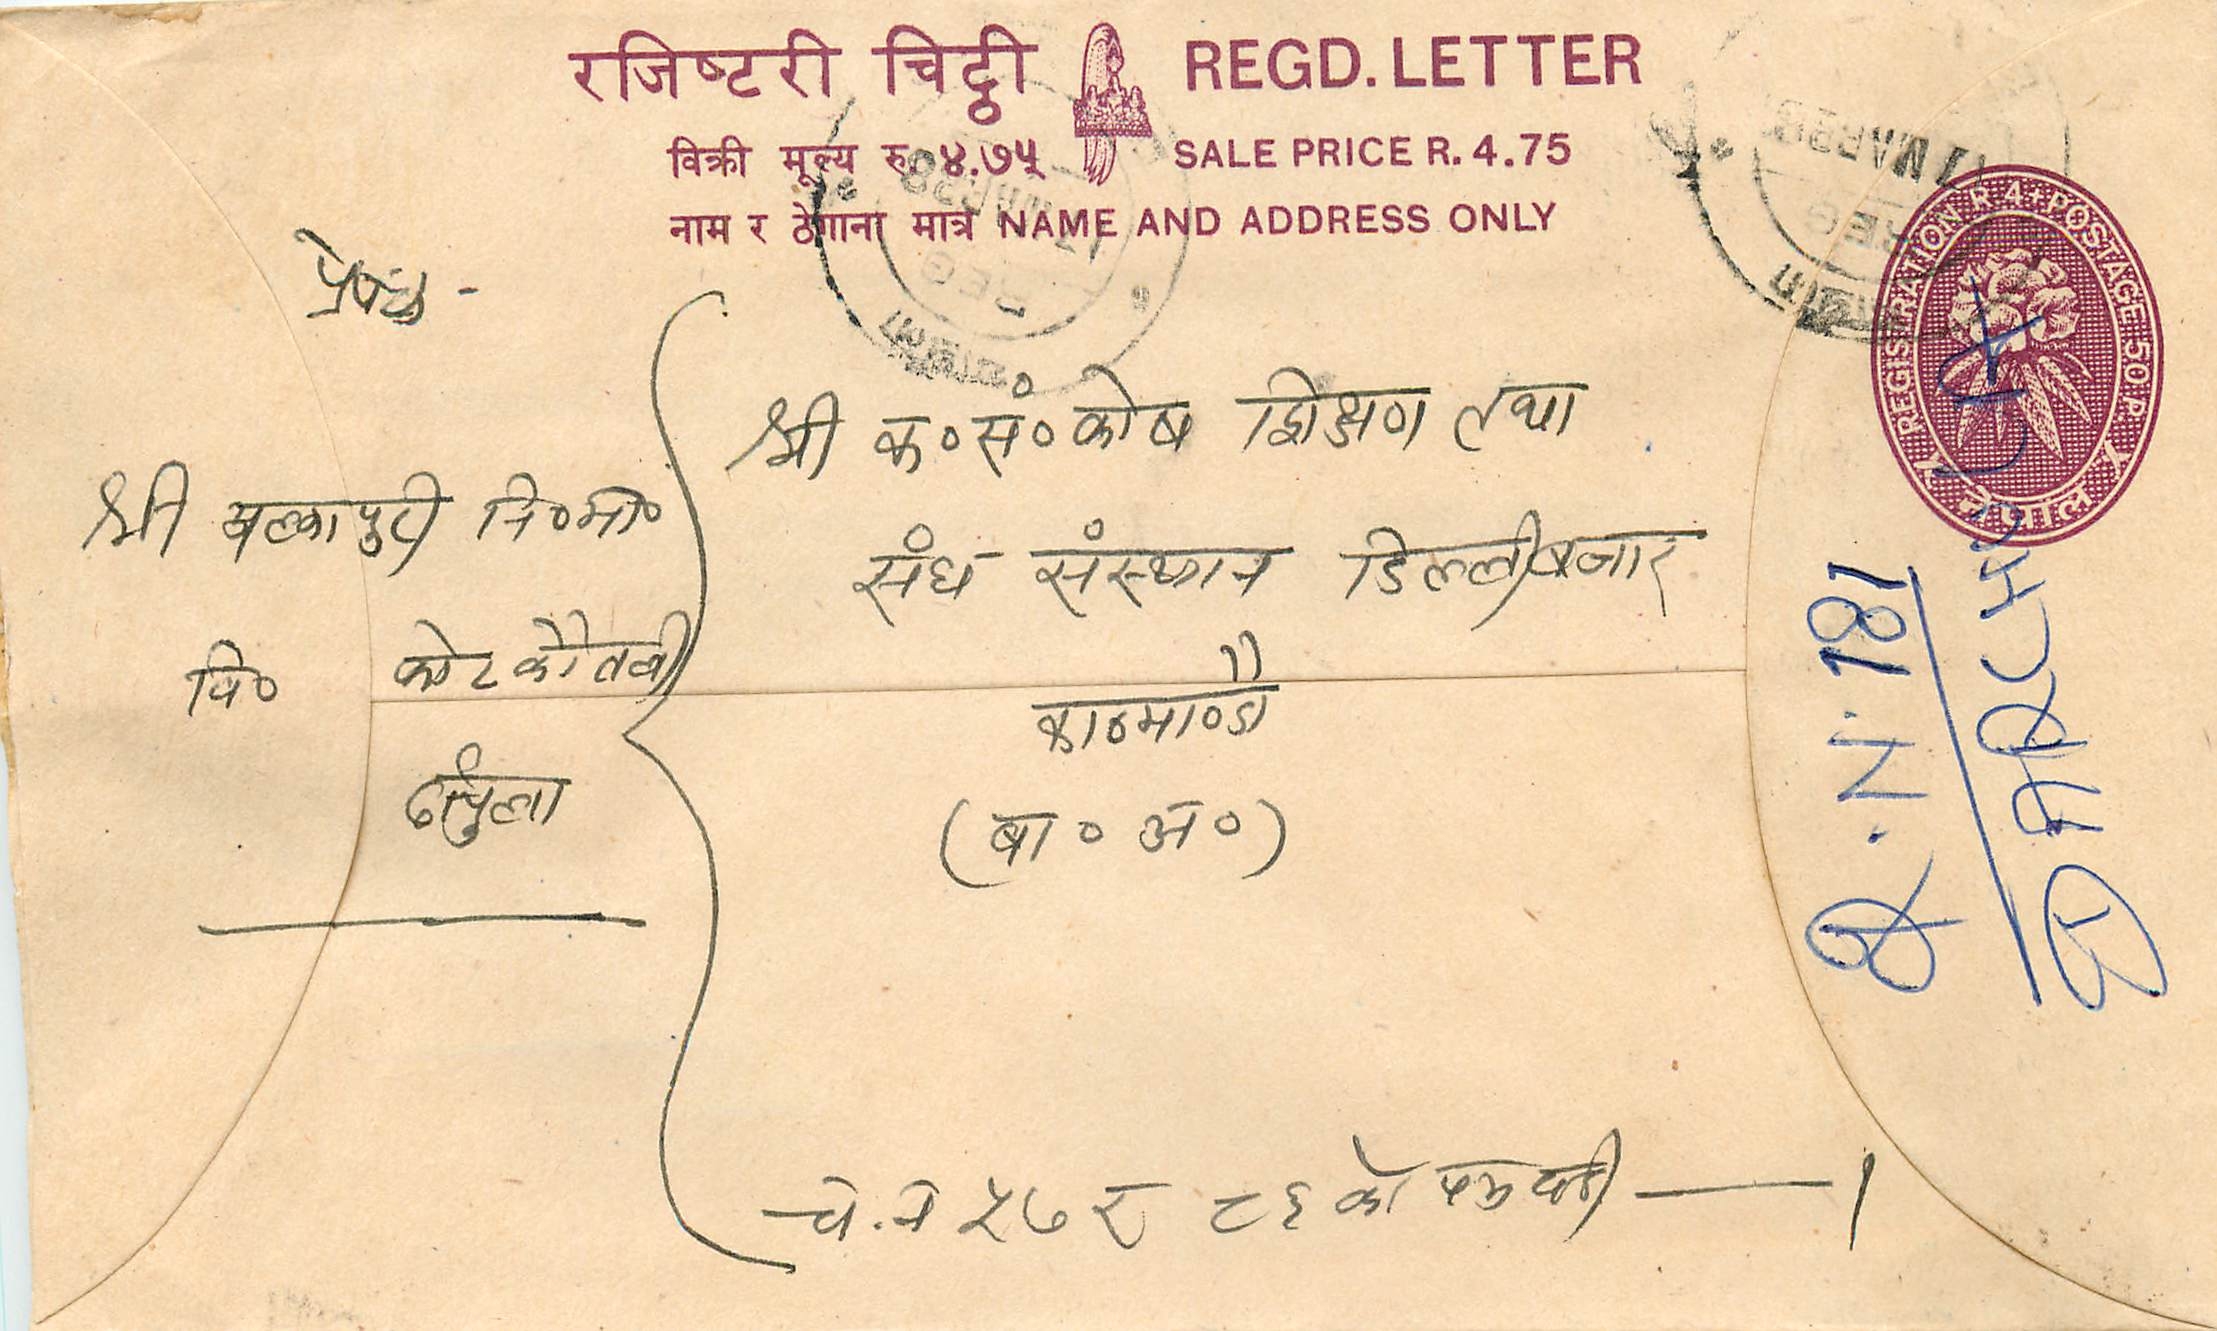 रजिष्टरी चिट्ठी REGD. LETTER
विक्री मूल्य रु. ४.७५ SALE PRICE R. 4.75
नाम र ठेगाना मात्र NAME AND ADDRESS ONLY
REGISTRATION R 4 + POSTAGE 50 P.
नेपाल
REG
प्रेषक -
श्री नि० मा०
वि०
श्री क० सं० कोष शिक्षण तथा
संघ संस्थान डिल्लीबजार
काठमाण्डौ
(बा० अ०)
चे. न ८६ को
R. N. 181
DARCHULA